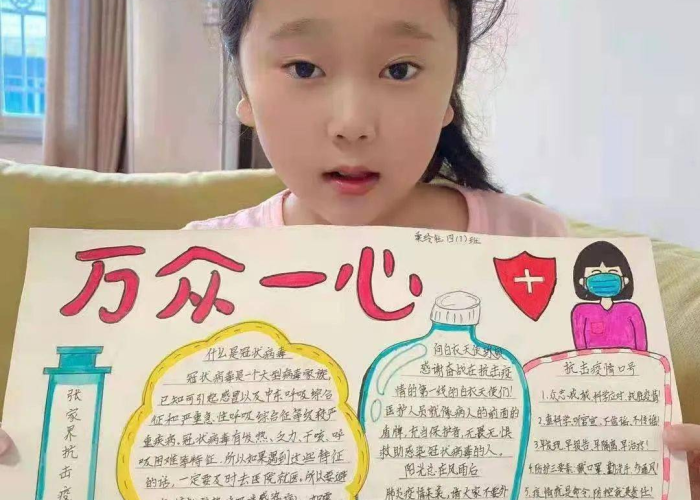 四(1)班
万众一心
张家界抗击疫
什么是冠状病毒
冠状病毒是一个大型病毒家族,
已知可引起感冒以及中东呼吸综合
征和严重急性呼吸综合征等较严
重疾病。冠状病毒有发热、乏力、干咳、呼
吸困难等特征。所以如果遇到这些特征
的话,一定要及时去医院救医。所以要避
向白衣天使致敬
感谢奋战在抗击疫
情的第一线的白衣天使们!
医护人员就像病人的前面的
盾牌,充当保护者,无畏无惧
救助感染冠状病毒的人,
阳光总在风雨后
抗击疫情口号
1.众志成城,科学应对,抗击疫情!
2.重科学,听官宣,不信谣,不传谣!
3.早发现,早报告,早隔离,早治疗!